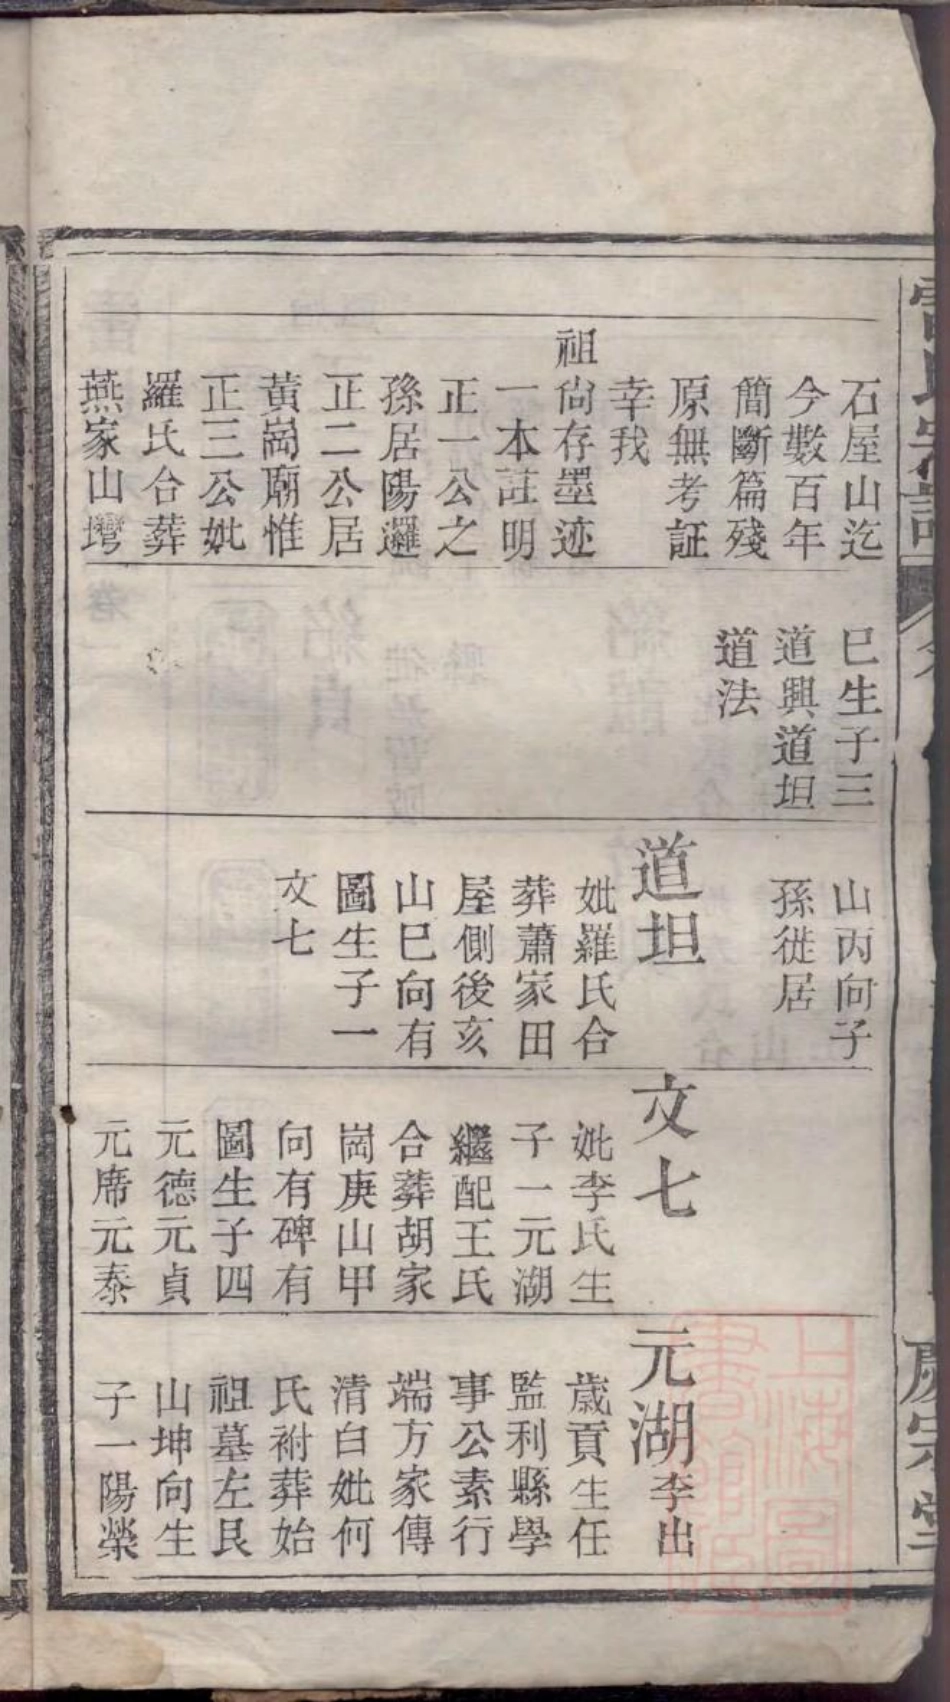 石屋山迄
今數百年
簡斷篇殘
原無考証
幸我
祖尙存墨迹
一本註明
正一公之
孫居陽邏
正二公居
黃崗廟惟
正三公妣
羅氏合葬
燕家山塆
巳生子三
道興道坦
道法
山丙向子
孫徙居
道坦
妣羅氏合
葬蕭家田
屋側後亥
山巳向有
圖生子一
文七
文七
妣李氏生
子一元湖
繼配王氏
合葬胡家
崗庚山甲
向有碑有
圖生子四
元德元貞
元席元泰
元湖李出
歲貢生任
監利縣學
事公素行
端方家傳
清白妣何
氏祔葬始
祖墓左艮
山坤向生
子一陽榮